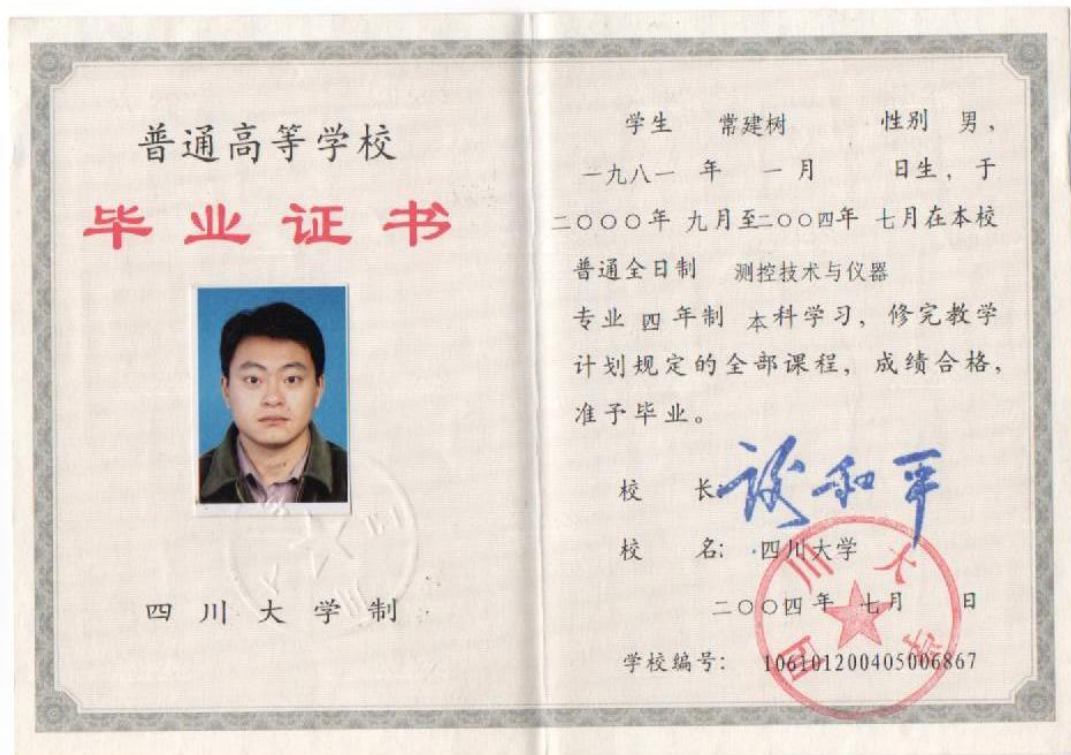 普通高等学校
毕业证书
四川大学制
学生 常建树 性别 男，
一九八一 年 一 月 日生，于
二〇〇〇年 九月至二〇〇四年 七月在本校
普通全日制 测控技术与仪器
专业 四 年制 本科学习，修完教学
计划规定的全部课程，成绩合格，
准予毕业。
校 长 谢和平
校 名: 四川大学
二〇〇四 年 七月 日
学校编号: 106101200405006867
四川大学